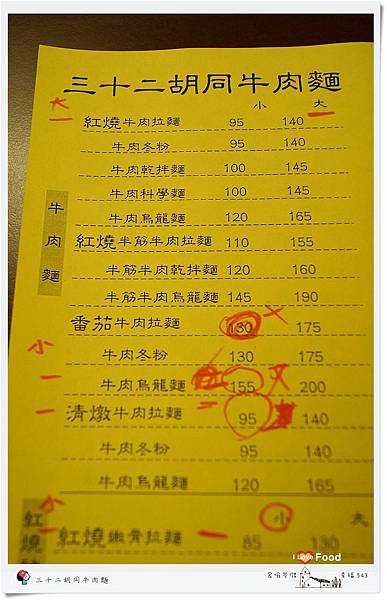 三十二胡同牛肉麵
小 大
大
一
紅燒牛肉拉麵 95 140
牛肉冬粉 95 140
牛肉乾拌麵 100 145
牛肉科學麵 100 145
牛肉烏龍麵 120 165
牛肉麵
紅燒半筋半肉拉麵 110 155
半筋半肉乾拌麵 120 160
半筋半肉烏龍麵 145 190
番茄牛肉拉麵 130 175
小 牛肉冬粉 130 175
一 牛肉烏龍麵 155 200
一 清燉牛肉拉麵 95 140
牛肉冬粉 95 140
牛肉烏龍麵 120 165
小 大
紅燒
紅燒嫩骨拉麵 一 85 130
I Love Food
三十二胡同牛肉麵
幸福 543